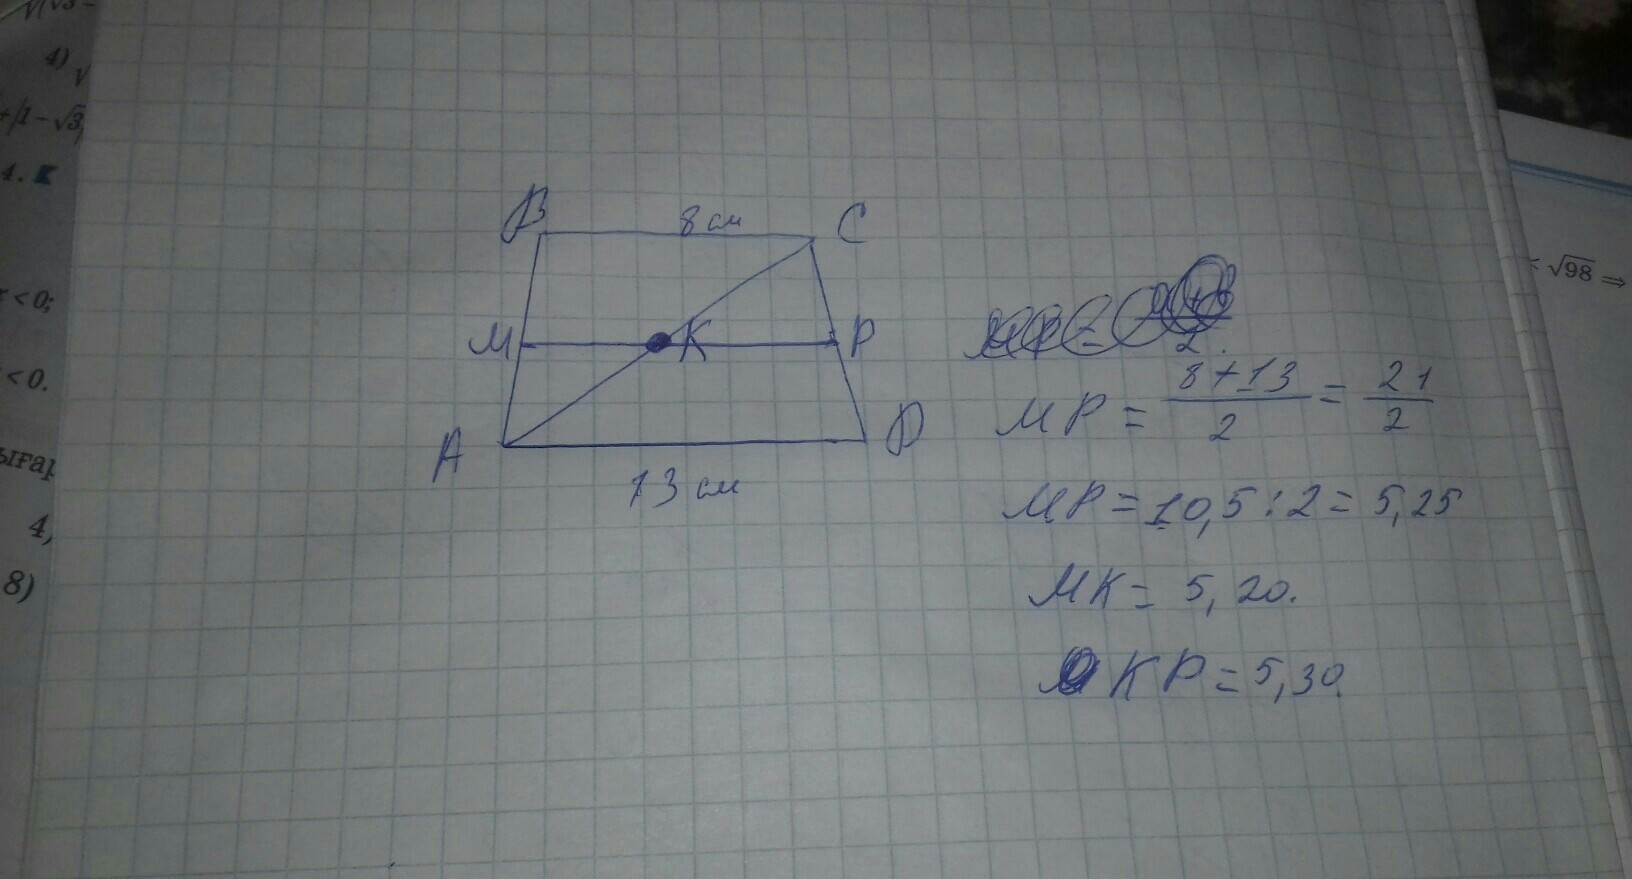 4)
+|1-√3
1.
<0;
<0.
ығар
4,
8)
B 8 см C
M K P
A D
13 см
MP = 8+13/2 = 21/2
MP = 10,5:2 = 5,25
MK = 5,20.
KP = 5,30.
< √98 ⇒